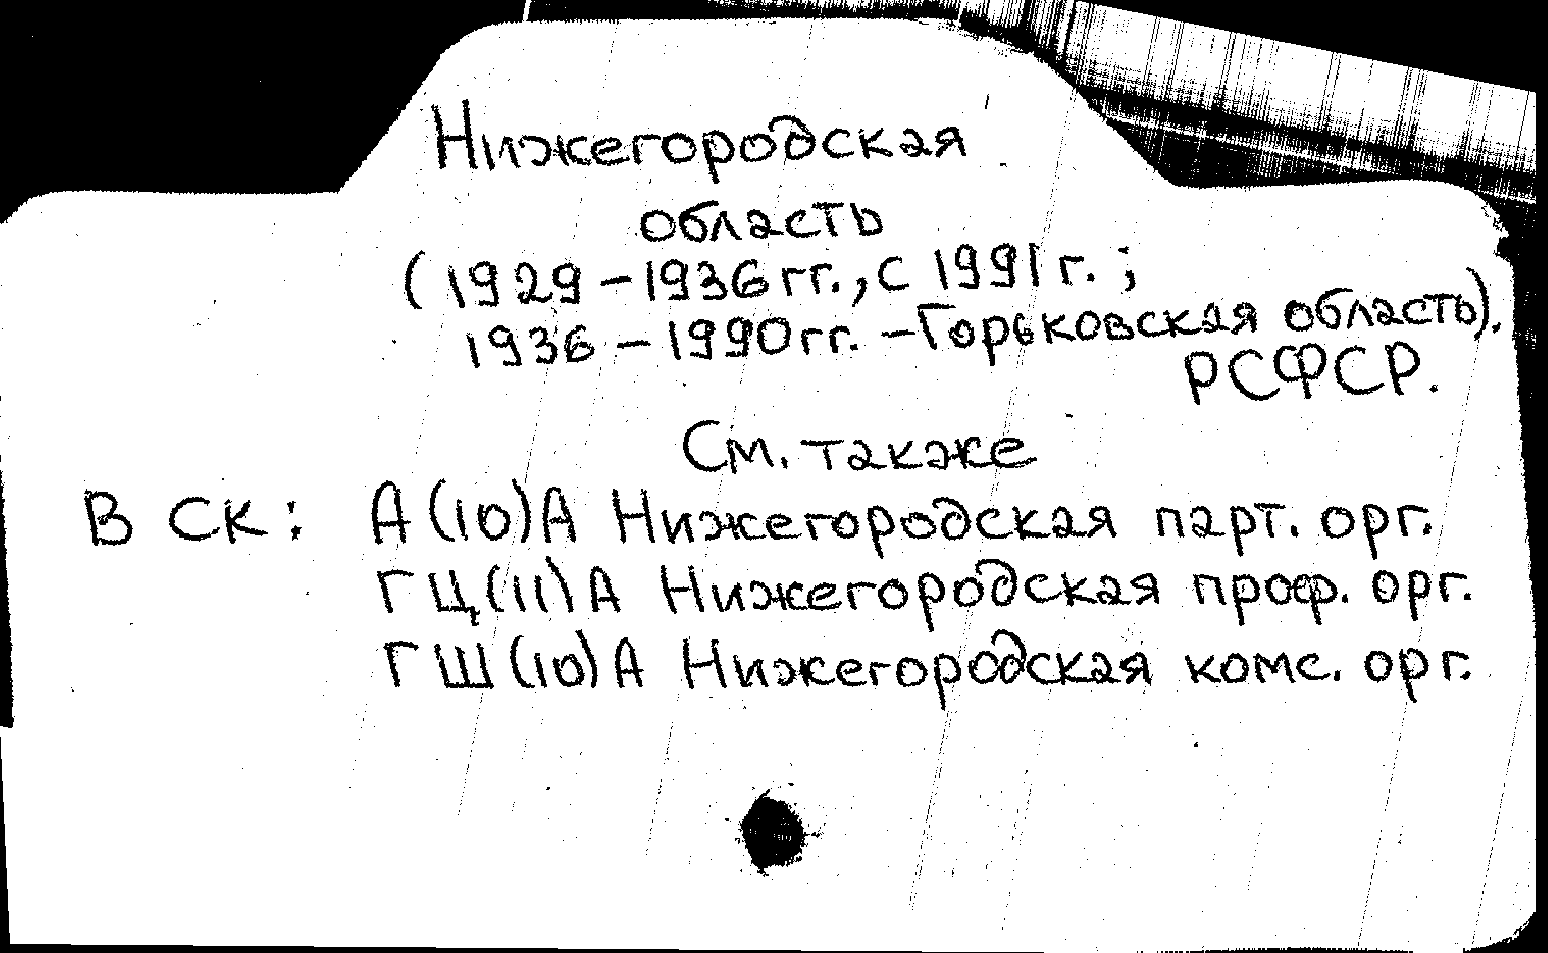 Нижегородская
область
(1929-1936 гг., с 1991 г. ;
1936-1990 гг. - Горьковская область).
РСФСР.
См. также
В СК: А(10)А Нижегородская парт. орг.
ГЦ(11)А Нижегородская проф. орг.
ГШ(10)А Нижегородская комс. орг.